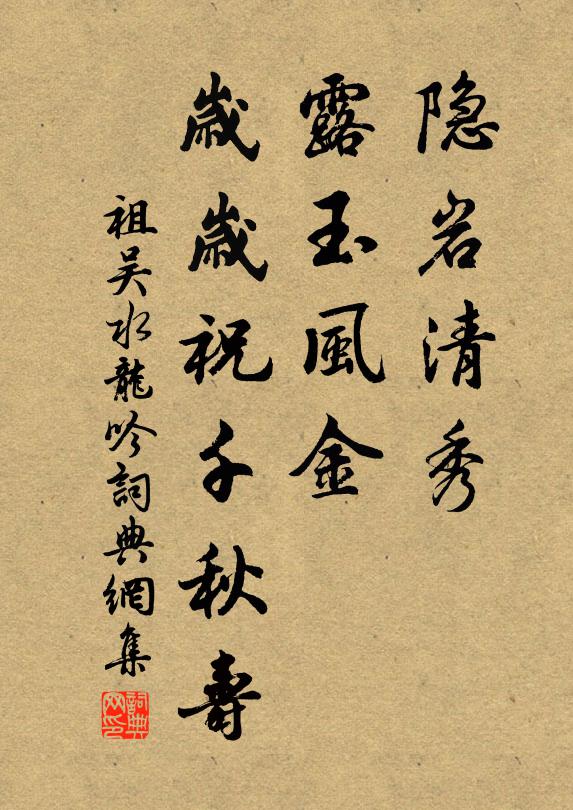 隐岩清秀
露玉風金
歲歲祝千秋壽
祖吴水龍吟詞典網集
詞典网印